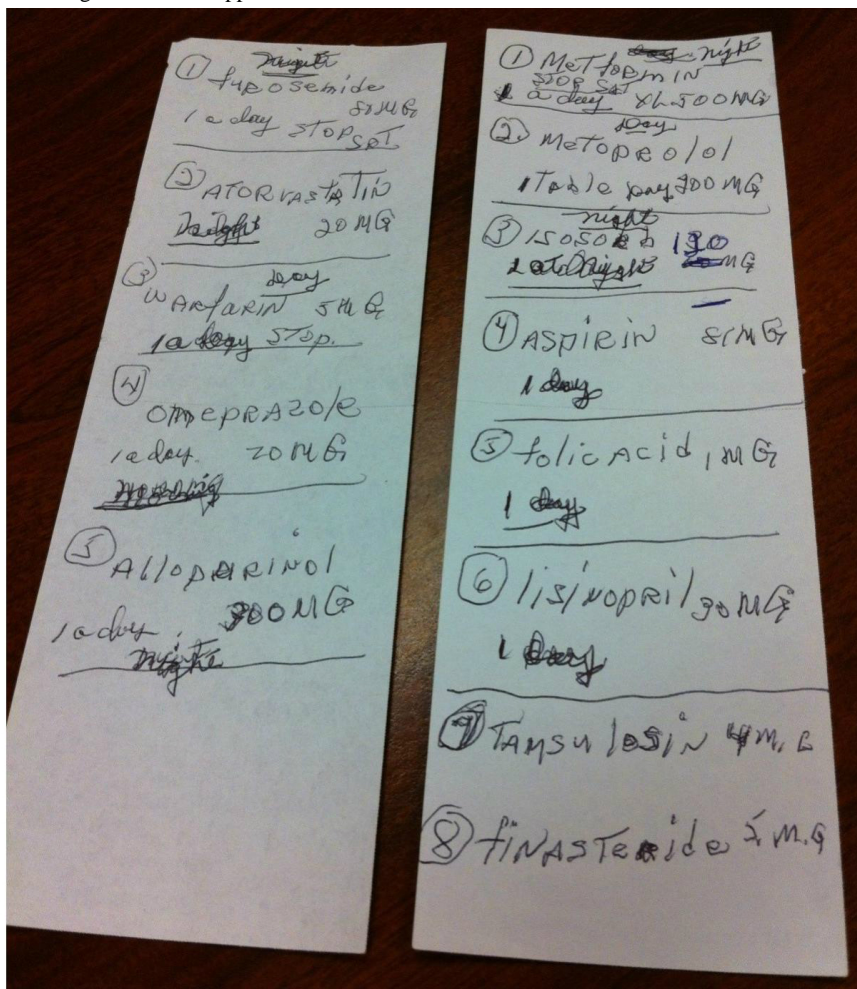 ① Night
furosemide
80 MG
1 a day STOP SAT
② ATORVASTATIN
20 MG
③ Day
WARfARIN 5 MG
1 a day STOP.
④
OMEPRAZOLE
1 a day. 20 MG
Morning
⑤ AllOPURINOl
1 a day. 300 MG
Night
① MeTfoRMIN night
STOP SAT
1 a day XL 500 MG
② Day
MeTOPROlol
1 Table Day 200 MG
③ night
ISOSORb
MG
④ ASPIRIN 81 MG
1 day
⑤ folic ACid 1 MG
1 day
⑥ lisiNOPRil 30 MG
1 Day
⑦ TAMSUlOSIN 4 M.G
⑧ fiNASTeRide 5 M.G